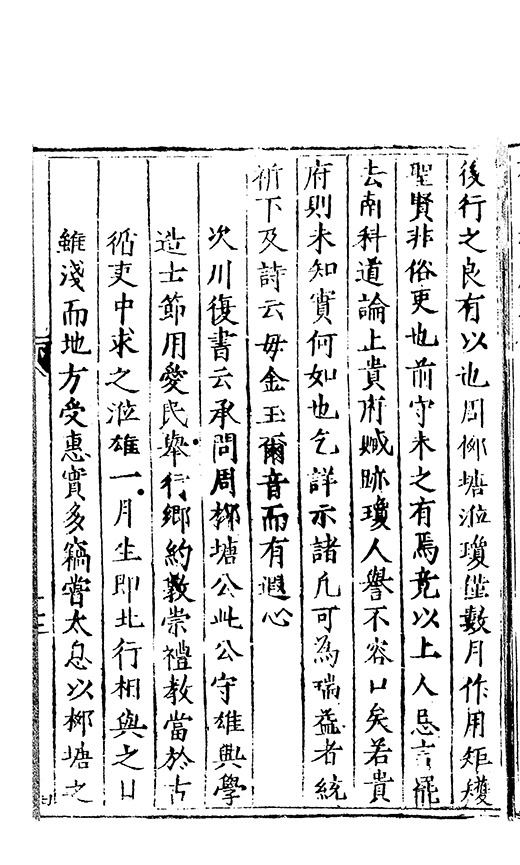 後行之良有以也周柳塘涖瓊僅數月作用矩矱
聖賢非俗吏也前守未之有焉竟以上人忌言罷
去南科道論上貴府贓跡瓊人譽不容口矣若貴
府則未知實何如也乞詳示諸凡可為瑞益者統
祈下及詩云毋金玉爾音而有遐心
次川復書云承問周柳塘公此公守雄興學
造士節用愛民舉行鄉約敦崇禮教當於古
循吏中求之涖雄一月生即北行相與之日
雖淺而地方受惠實多竊嘗太息以柳塘之